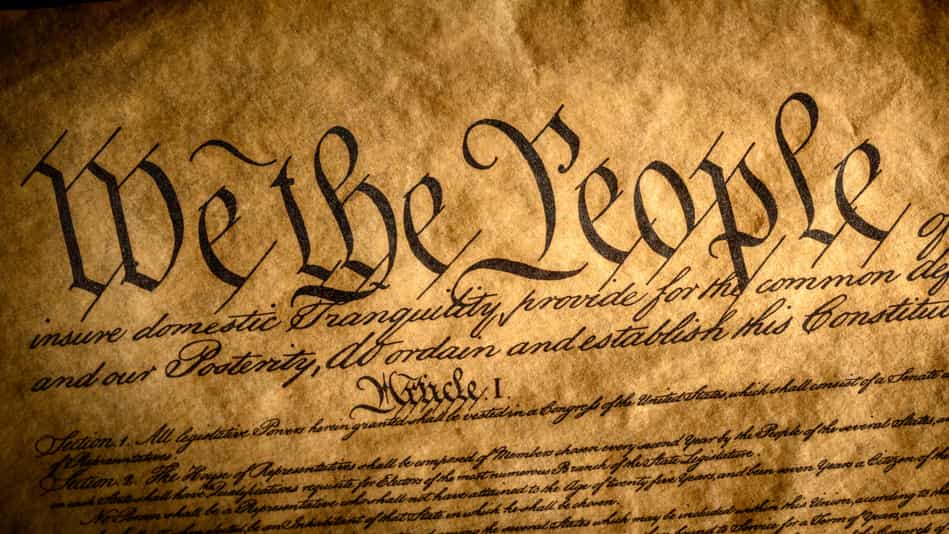 We the People of
insure domestic Tranquility, provide for the common
and our Posterity, do ordain and establish this
Article. I.
Section. 1. All legislative Powers herein granted shall be vested in a Congress of the United States, which shall consist of a Senate
of Representatives.
Section. 2. The House of Representatives shall be composed of Members chosen every second Year by the People of the several States,
in each State shall have Qualifications requisite for Electors of the most numerous Branch of the State Legislature.
No Person shall be a Representative who shall not have attained to the Age of twenty five Years, and been seven Years a Citizen of the
be an Inhabitant of that State in which he shall be chosen.
among the several States which may be included within this Union, according to
bound to Service for a Term of Years, and